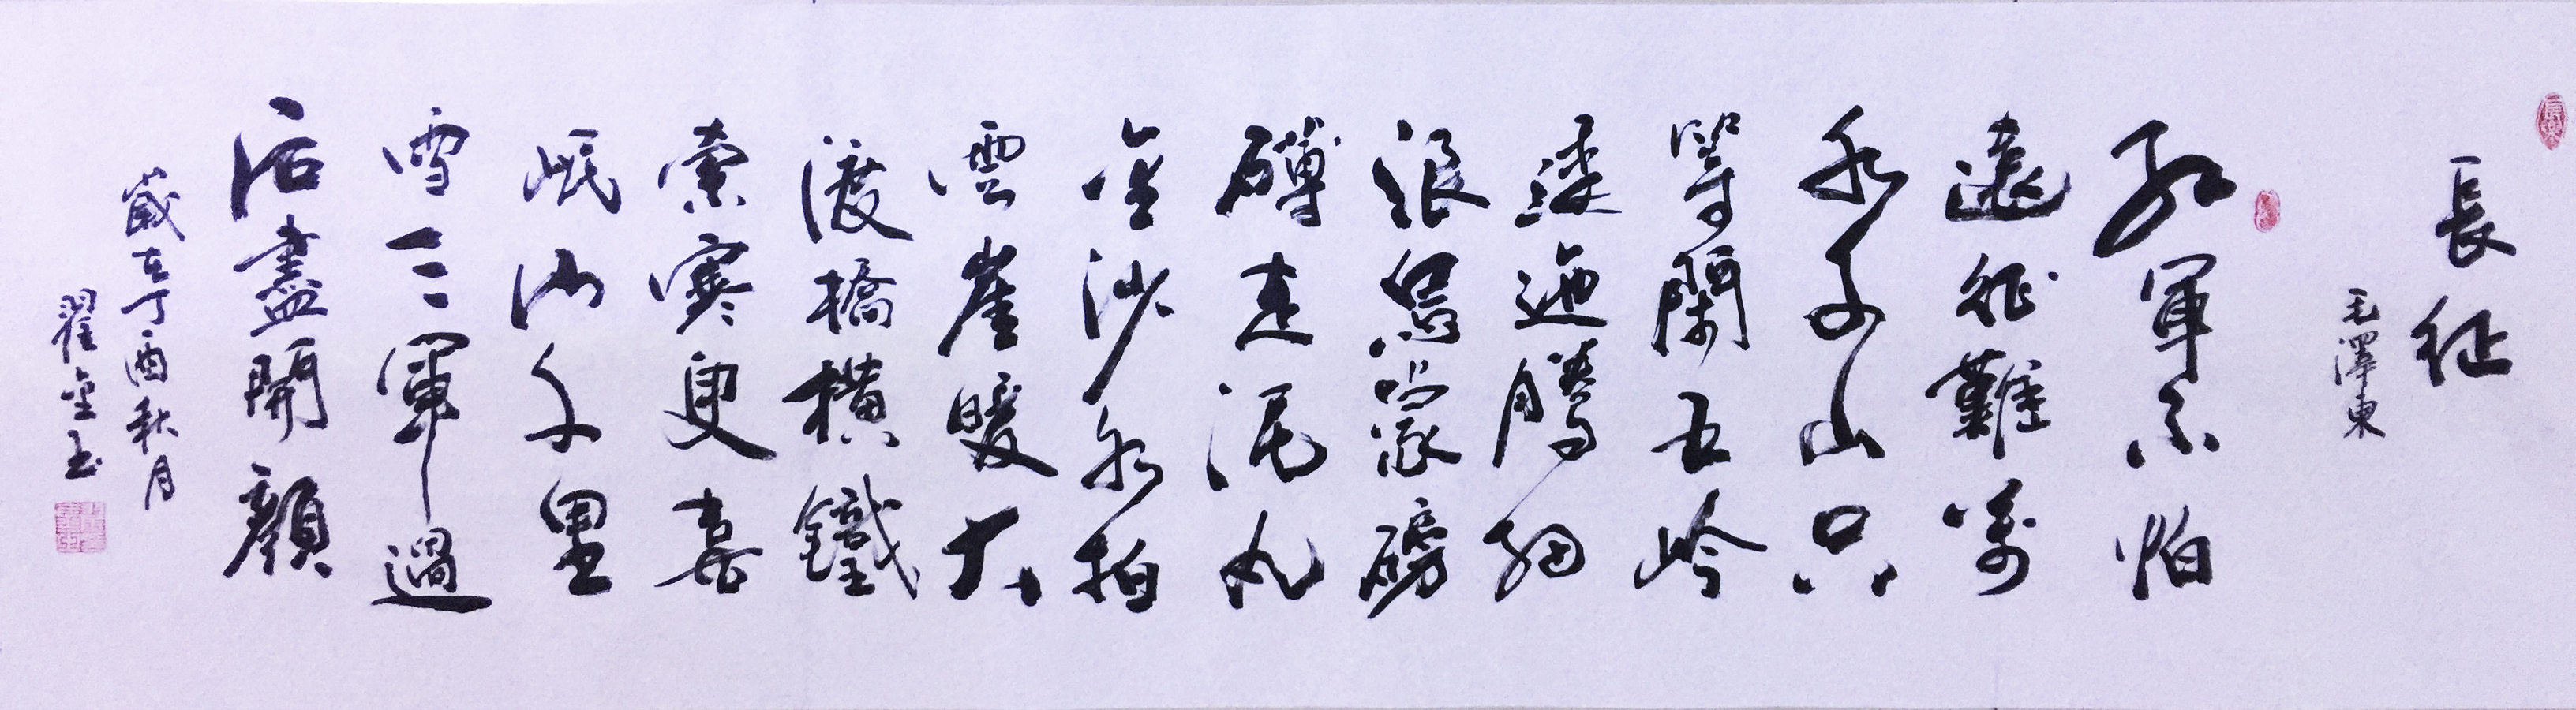 長征
毛澤東
紅軍不怕
遠征難萬
水千山只
等閑五岭
逶迤騰細
浪烏蒙磅
礴走泥丸
金沙水拍
雲崖暖大
渡橋橫鐵
索寒更喜
岷山千里
雪三軍過
后盡開顏
歲在丁酉秋月
翟金玉